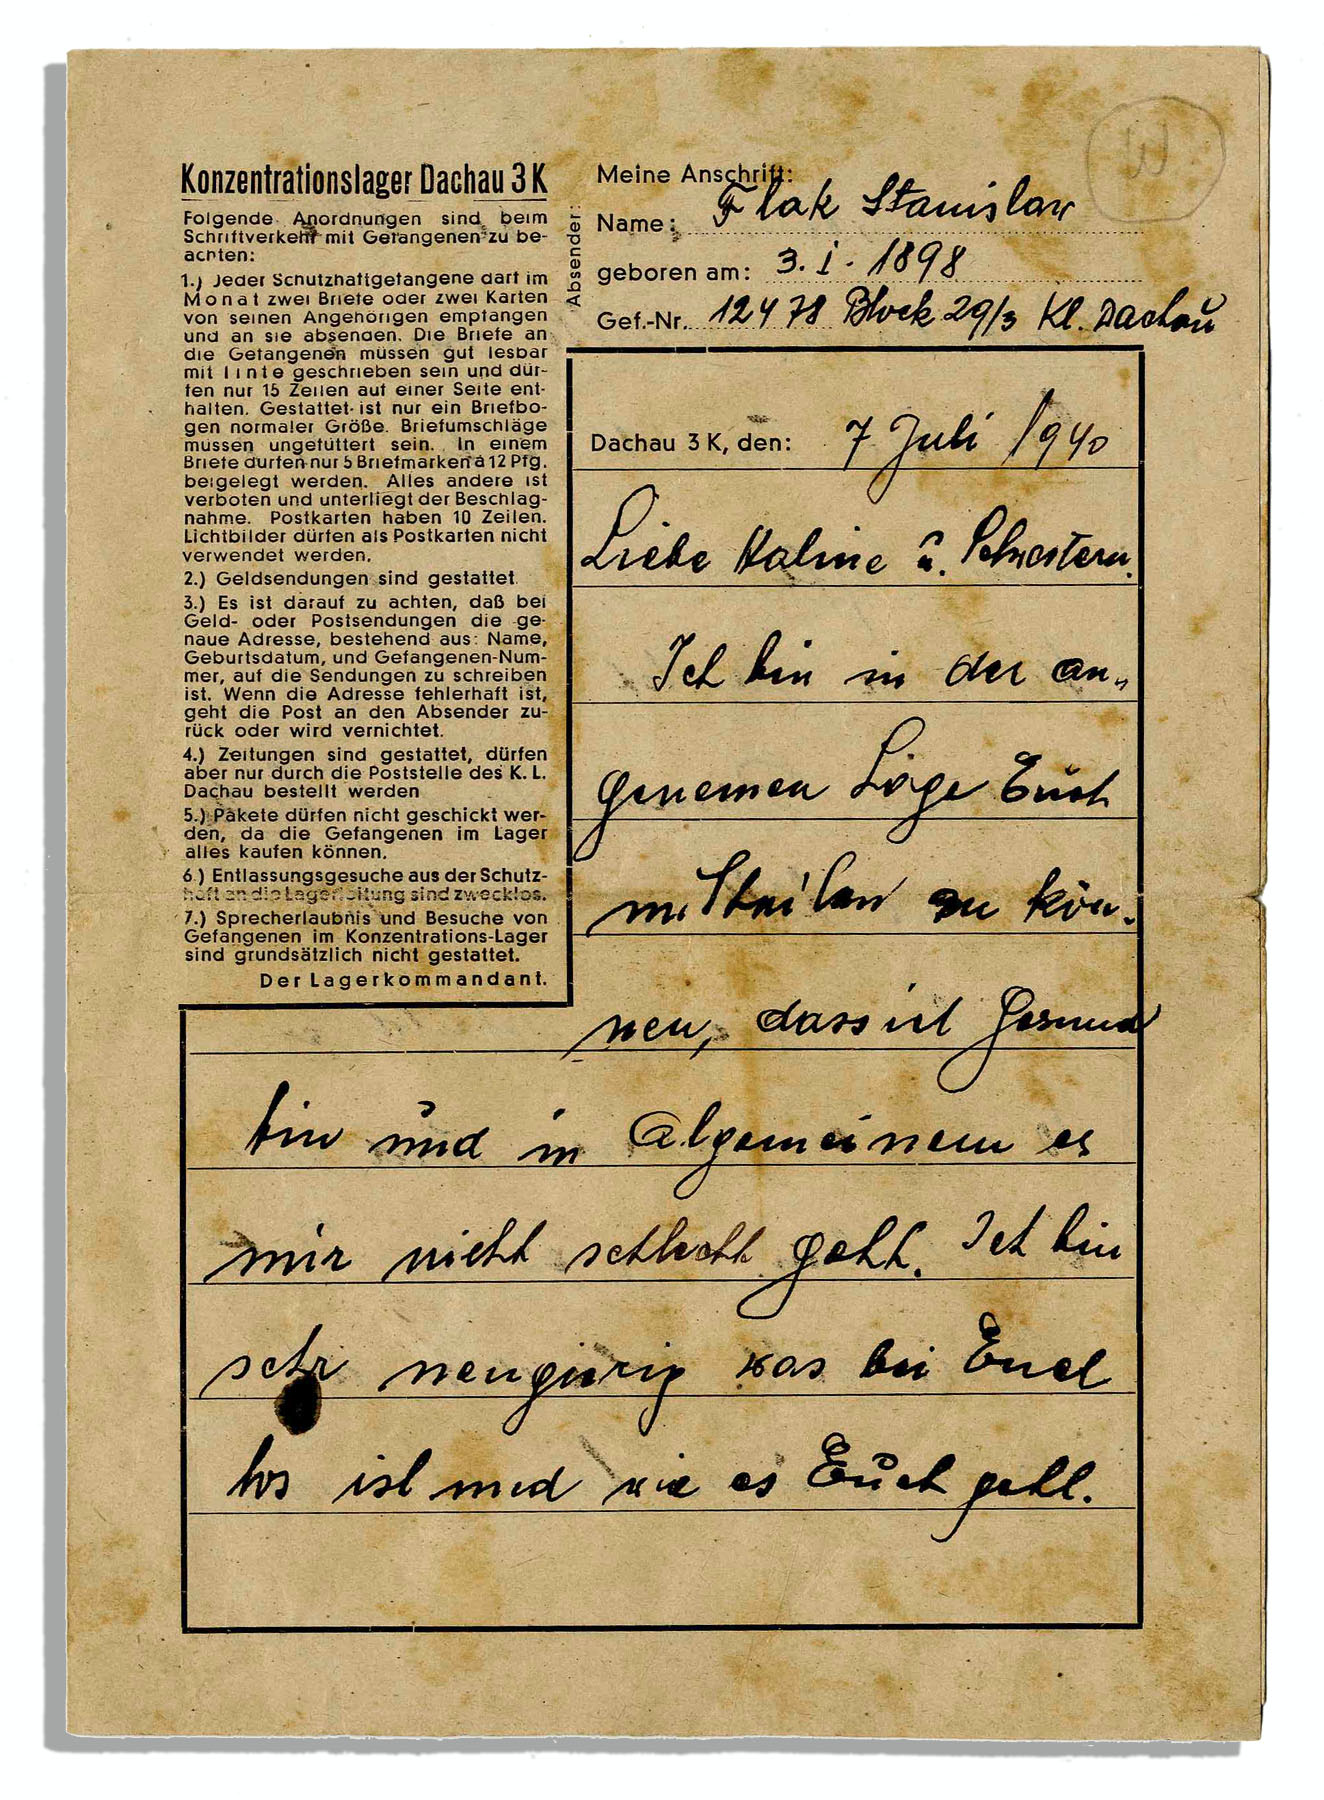 W
Konzentrationslager Dachau 3 K
Folgende Anordnungen sind beim
Schriftverkehr mit Gefangenen zu be-
achten:
1.) Jeder Schutzhaftgefangene darf im
Monat zwei Briefe oder zwei Karten
von seinen Angehörigen empfangen
und an sie absenden. Die Briefe an
die Gefangenen müssen gut lesbar
mit Tinte geschrieben sein und dür-
fen nur 15 Zeilen auf einer Seite ent-
halten. Gestattet ist nur ein Briefbo-
gen normaler Größe. Briefumschläge
müssen ungefüttert sein. In einem
Briefe dürfen nur 5 Briefmarken à 12 Pfg.
beigelegt werden. Alles andere ist
verboten und unterliegt der Beschlag-
nahme. Postkarten haben 10 Zeilen.
Lichtbilder dürfen als Postkarten nicht
verwendet werden.
2.) Geldsendungen sind gestattet
3.) Es ist darauf zu achten, daß bei
Geld- oder Postsendungen die ge-
naue Adresse, bestehend aus: Name,
Geburtsdatum, und Gefangenen-Num-
mer, auf die Sendungen zu schreiben
ist. Wenn die Adresse fehlerhaft ist,
geht die Post an den Absender zu-
rück oder wird vernichtet.
4.) Zeitungen sind gestattet, dürfen
aber nur durch die Poststelle des K. L.
Dachau bestellt werden
5.) Pakete dürfen nicht geschickt wer-
den, da die Gefangenen im Lager
alles kaufen können.
6.) Entlassungsgesuche aus der Schutz-
haft an die Lagerleitung sind zwecklos.
7.) Sprecherlaubnis und Besuche von
Gefangenen im Konzentrations-Lager
sind grundsätzlich nicht gestattet.
Der Lagerkommandant.
Absender:
Meine Anschrift:
Name: Flak Stanislaw
geboren am: 3. I. 1898
Gef.-Nr. 12478 Block 29/3 Kl. Dachau
Dachau 3 K, den: 7 Juli 1940
Liebe Haline u. Schwestern.
Ich bin in der an„
genemen Lage Euch
mitteilen zu kön-
nen, dass ich Gesund
bin und in Algemeinem es
mir nicht schlecht geht. Ich bin
sehr neugierig was bei Euch
los ist und wie es Euch geht.